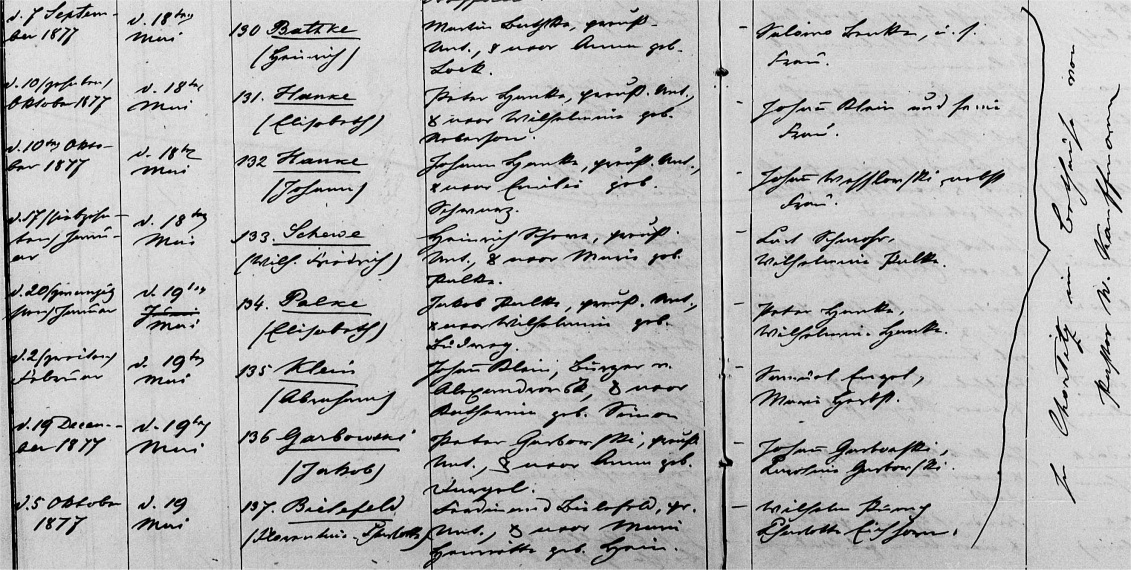 d. 7 Septem-
ber 1877
d. 18ten
Mai
130 Batzke
(Heinrich)
Martin Batzke, preuß.
Unt., & uxor Anna geb.
Lock.
- Salomo Lenke, u. s.
Frau.
d. 10 /zehnten/
Oktober 1877
d. 18ten
Mai
131. Hanke
(Elisabeth)
Peter Hanke, preuß. Unt.,
& uxor Wilhelmine geb.
- Johann Klein und seine
Frau.
d. 10ten Okto-
ber 1877
d. 18ten
Mai
132 Hanke
(Johann)
Johann Hanke, preuß. Unt.,
& uxor Emilie geb.
Schwarz.
- Johann nebst
Frau.
d. 17 /siebzehn-
ten/ Janu-
ar
d. 18ten
Mai
133. Schewe
(Wilh. Friedrich)
Heinrich Schewe, preuß.
Unt., & uxor Maria geb.
Palke.
-
Wilhelmine Palke.
d. 20 /zwanzig
sten/ Januar
d. 19ten
Juni
Mai
134. Palke
(Elisabeth)
Jakob Palke, preuß. Unt.,
& uxor Wilhelmine geb.
Ludwig.
- Peter Hanke,
Wilhelmine Hanke.
d. 2 /zweiten/
Februar
d. 19ten
Mai
135 Klein
(Abraham)
Johann Klein, Bürger v.
Alexandrowsk, & uxor
Katharina geb. Simon
- Samuel Engel,
Maria Herbst.
d. 19 Decem-
ber 1877
d. 19ten
Mai
136 Garbowski
(Jakob)
Peter Garbowski, preuß.
Unt., & uxor Anna geb.
- Johann Garbowski,
Karoline Garbowski.
d. 5 Oktober
1877
d. 19
Mai
137. Bielefeld
(Florentine Charlotte)
Ferdinand Bielefeld, pr.
Unt., & uxor Maria
Henriette geb. Hein.
- Wilhelm
Charlotte Eichhorn.
In Chortitz im Bethause von
Pastor N. Kauffmann